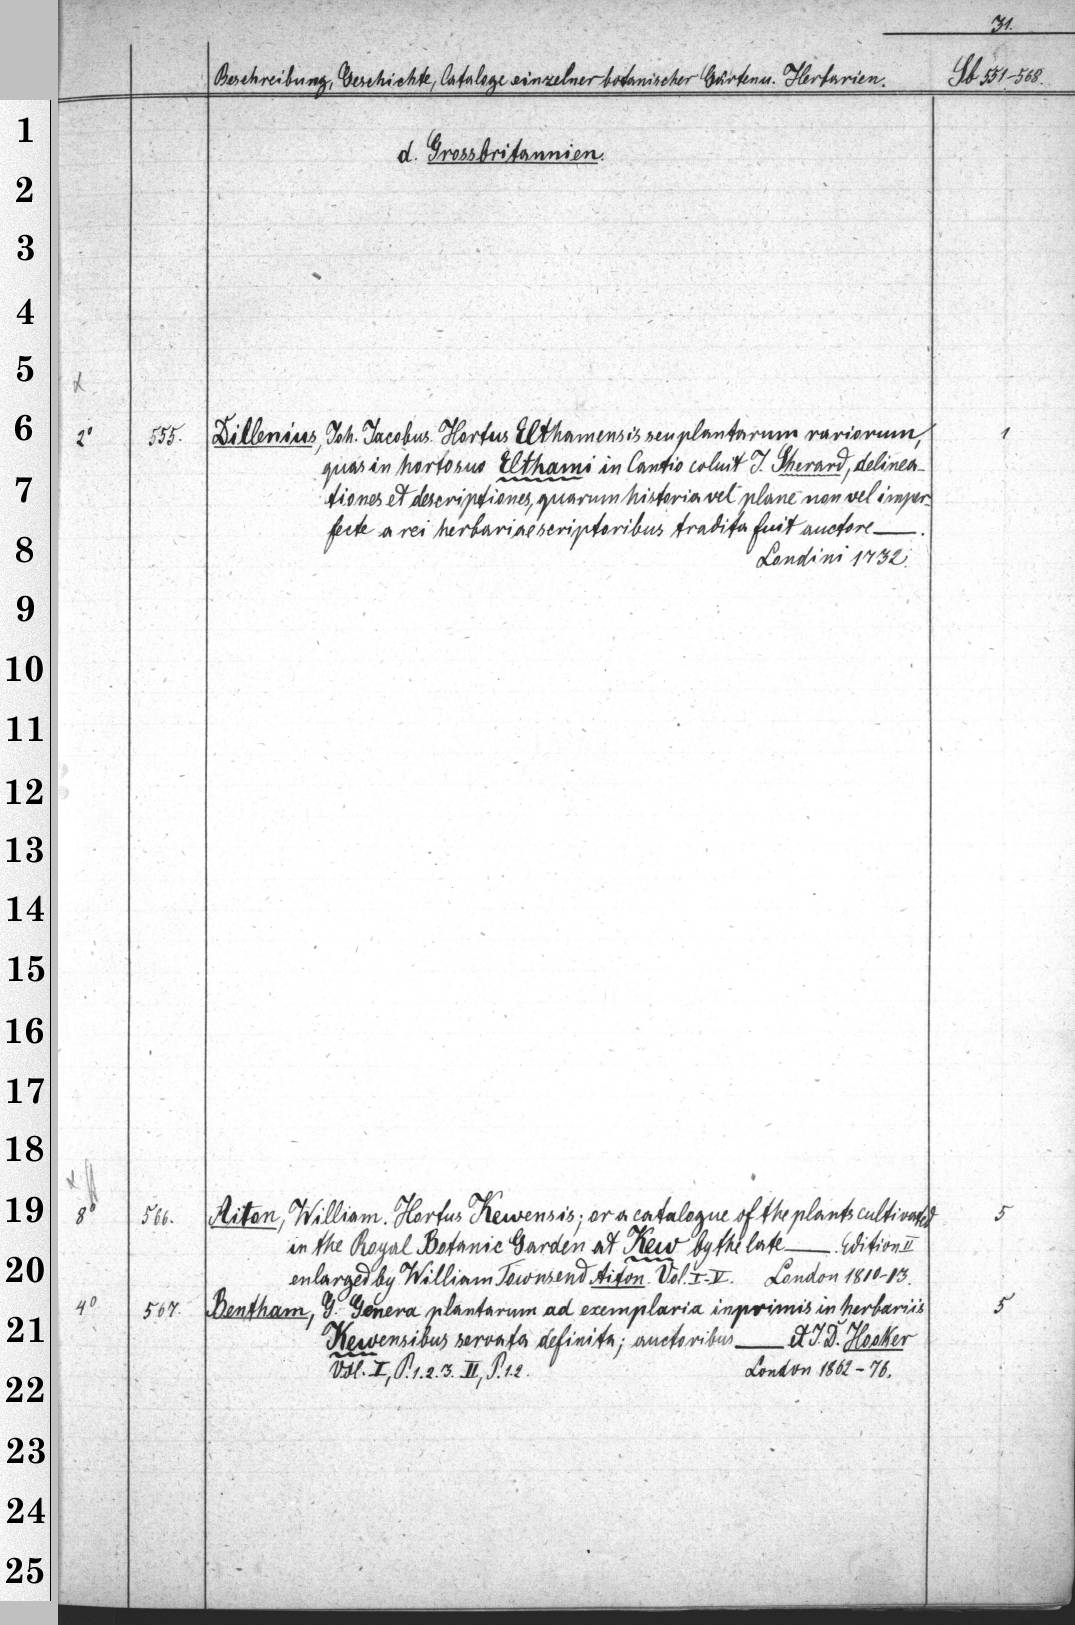 31.
Beschreibung, Geschichte, Cataloge einzelner botanischer Gärten u. Herbarien. Sb 551-568.
1
d. Grossbritannien.
2
3
4
5
6
2° 555. Dillenius, Joh. Jacobus. Hortus Elthamensis seu plantarum rariorum, 1
quas in horto suo Elthami in Cantio coluit J. Sherard, delinea-
7
tiones et descriptiones, quarum historia vel plane non vel imper-
fecte a rei herbariae scriptoribus tradita fuit auctore —.
8
Londini 1732.
9
10
11
12
13
14
15
16
17
18
19
8° 566. Aiton, William. Hortus Kewensis; or a catalogue of the plants cultivated 5
in the Royal Botanic Garden at Kew by the late —. Edition II
20
enlarged by William Townsend Aiton. Vol. I-V. London 1810-13.
4° 567. Bentham, G. Genera plantarum ad exemplaria inprimis in herbariis 5
21
Kewensibus servata definita; auctoribus — et J. D. Hooker
Vol. I, P. 1. 2. 3. II, P. 1. 2. London 1862-76.
22
23
24
25